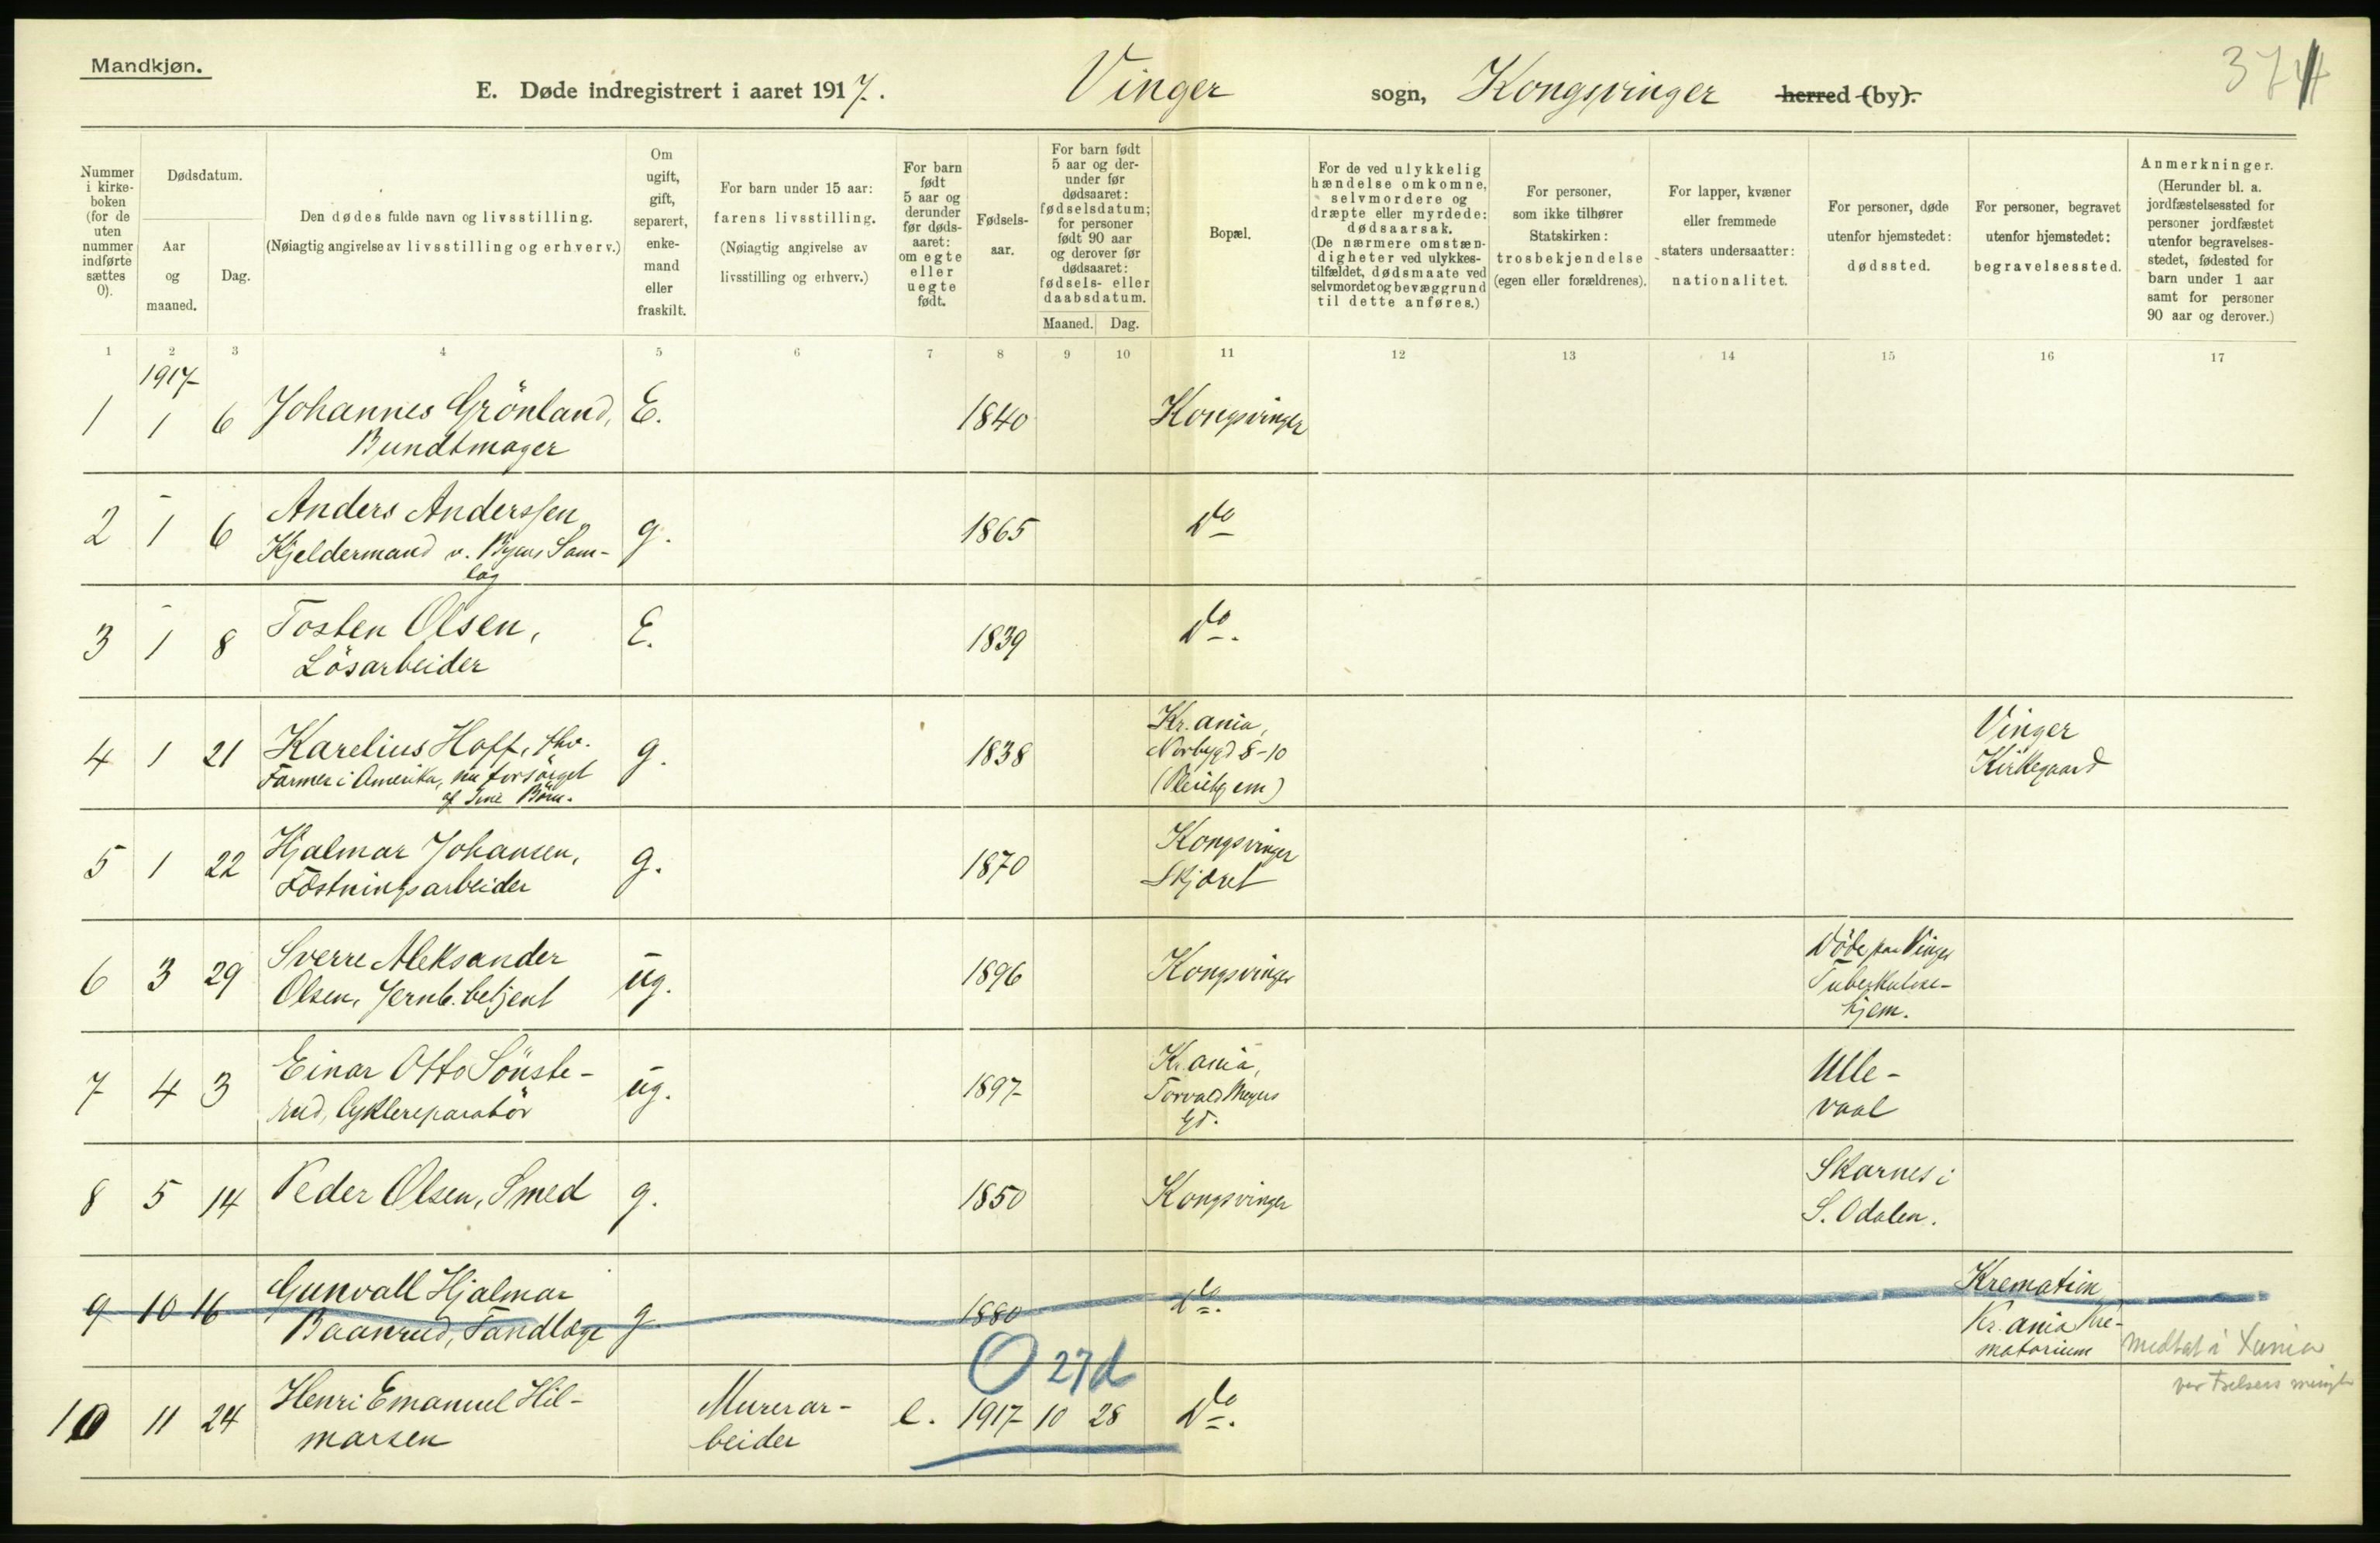 Mandkjøn.
E. Døde indregistrert i aaret 1917. Vinger sogn, Kongsvinger herred (by).
374
Nummer i kirke-boken (for de uten nummer indførte sættes 0).
Dødsdatum.
Aar og maaned.
Dag.
Den dødes fulde navn og livsstilling.
(Nøiagtig angivelse av livsstilling og erhverv.)
Om ugift, gift, separert, enke-mand eller fraskilt.
For barn under 15 aar: farens livsstilling.
(Nøiagtig angivelse av livsstilling og erhverv.)
For barn født 5 aar og derunder før døds-aaret: om egte eller uegte født.
Fødsels-aar.
For barn født 5 aar og der-under før dødsaaret: fødselsdatum; for personer født 90 aar og derover før dødsaaret: fødsels- eller daabsdatum.
Maaned. Dag.
Bopæl.
For de ved ulykkelig hændelse omkomne, selvmordere og dræpte eller myrdede: dødsaarsak.
(De nærmere omstæn-digheter ved ulykkes-tilfældet, dødsmaate ved selvmordet og bevæggrund til dette anføres.)
For personer, som ikke tilhører Statskirken: trosbekjendelse (egen eller forældrenes).
For lapper, kvæner eller fremmede staters undersaatter: nationalitet.
For personer, døde utenfor hjemstedet: dødssted.
For personer, begravet utenfor hjemstedet: begravelsessted.
Anmerkninger.
(Herunder bl. a. jordfæstelsessted for personer jordfæstet utenfor begravelses-stedet, fødested for barn under 1 aar samt for personer 90 aar og derover.)
1 2 3 4 5 6 7 8 9 10 11 12 13 14 15 16 17
1917
1 1 6 Johannes Grönland, E. 1840 Kongsvinger
Bundtmager
2 1 6 Anders Anderssen, g. 1865 do
Kjeldermand v. Byens Sam-
lag
3 1 8 Tosten Olsen, E. 1839 do.
Lösarbeider
4 1 21 Karelius Hoff, fhv. g. 1838 Kr.ania, Vinger
Farmer i Amerika, nu forsörget Norbygd 8-10 Kirkegaard
af sine Börn. (Pleiehjem)
5 1 22 Hjalmar Johansen, g. 1870 Kongsvinger
Fæstningsarbeider Skjæret
6 3 29 Sverre Aleksander ug. 1896 Kongsvinger Döde paa Vinger
Olsen, Jernb.betjent Tuberkulose-
hjem.
7 4 3 Einar Otto Sönste- ug. 1897 Kr.ania, Ulle-
rud, Cyklereparatör Torvald Meyers vaal
gd.
8 5 14 Peder Olsen, Smed g. 1850 Kongsvinger Skarnes i
S. Odalen.
9 10 16 Gunvall Hjalmar g. 1880 do. Kremation
Baanrud, Tandlæge Kr.ania Kre-
matorium medtat i Xania
0 27d
10 11 24 Henri Emanuel Hil- Murerar- e. 1917 10 28 do.
marsen beider